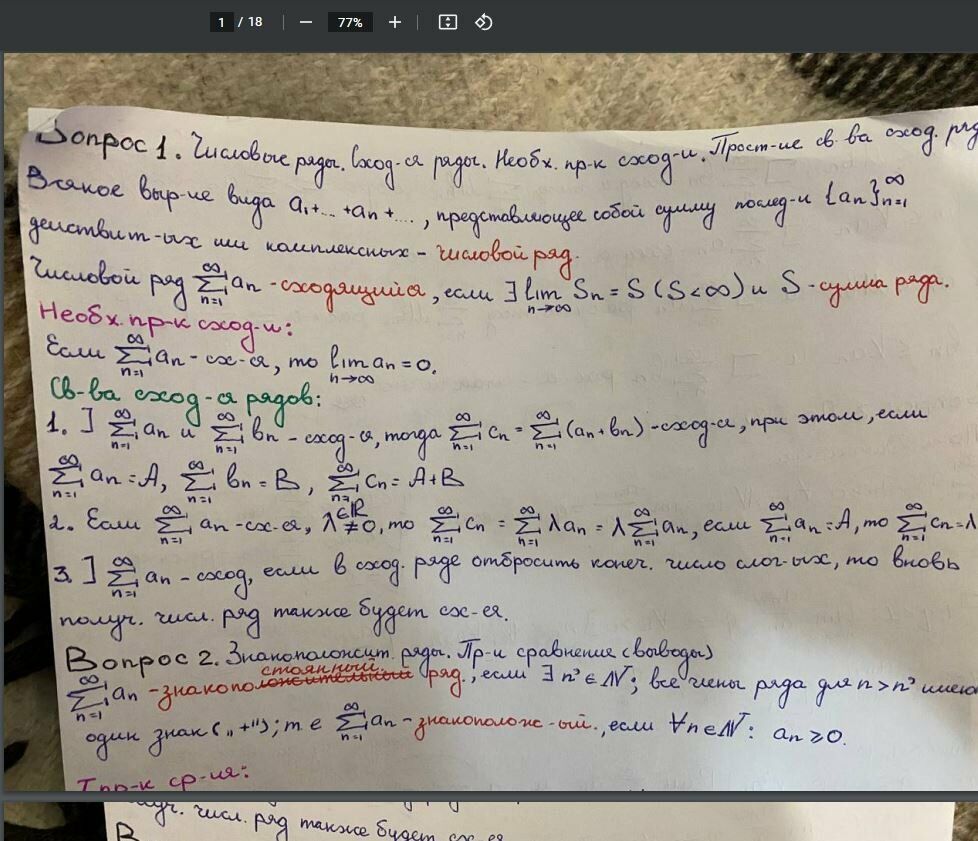 1 / 18 77%
Вопрос 1. Числовые ряды. Сход-ся ряды. Необх. пр-к сход-и. Прост-ие св-ва сход. ряд
Всякое выр-ие вида a₁+...+aₙ+..., представляющее собой сумму послед-и {aₙ}ₙ₌₁^∞
действит-ых или комплексных - числовой ряд.
Числовой ряд ∑ₙ₌₁^∞ aₙ - сходящийся, если ∃ lim_{n→∞} Sₙ = S (S<∞) и S - сумма ряда.
Необх. пр-к сход-и:
Если ∑ₙ₌₁^∞ aₙ - сх-ся, то lim_{n→∞} aₙ = 0.
Св-ва сход-ся рядов:
1. ] ∑ₙ₌₁^∞ aₙ и ∑ₙ₌₁^∞ bₙ - сход-ся, тогда ∑ₙ₌₁^∞ cₙ = ∑ₙ₌₁^∞ (aₙ+bₙ) - сход-ся, при этом, если
∑ₙ₌₁^∞ aₙ = A, ∑ₙ₌₁^∞ bₙ = B, ∑ₙ₌₁^∞ cₙ = A+B
2. Если ∑ₙ₌₁^∞ aₙ - сх-ся, λ ∈ℝ ≠0, то ∑ₙ₌₁^∞ cₙ = ∑ₙ₌₁^∞ λaₙ = λ∑ₙ₌₁^∞ aₙ, если ∑ₙ₌₁^∞ aₙ = A, то ∑ₙ₌₁^∞ cₙ = λ
3. ] ∑ₙ₌₁^∞ aₙ - сход, если в сход. ряде отбросить конеч. число слог-ых, то вновь
получ. числ. ряд также будет сх-ся.
Вопрос 2. Знакоположит. ряды. Пр-и сравнение (выводы)
стоянный
∑ₙ₌₁^∞ aₙ - знакоположительный ряд., если ∃ n° ∈ N; все члены ряда для n > n° имею
один знак („+"); т.е ∑ₙ₌₁^∞ aₙ - знакополож-ый., если ∀n∈N: aₙ ≥ 0.
I пр-к ср-ия:
получ. числ. ряд также будет сх-ся